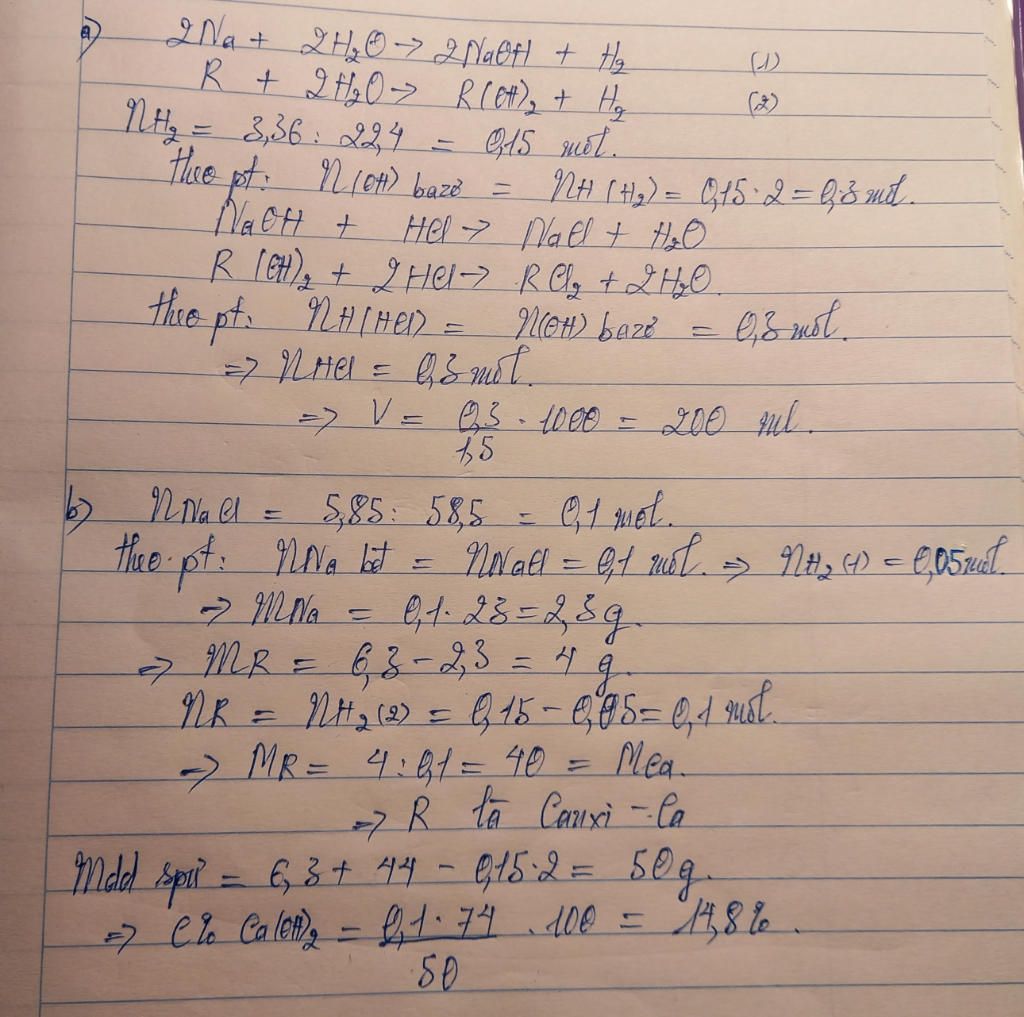 a) 2Na + 2H₂O → 2NaOH + H₂ (1)
R + 2H₂O → R(OH)₂ + H₂ (2)
nH₂ = 3,36 : 22,4 = 0,15 mol.
theo pt: n(OH) bazơ = nH (H₂) = 0,15 · 2 = 0,3 mol.
NaOH + HCl → NaCl + H₂O
R(OH)₂ + 2HCl → RCl₂ + 2H₂O.
theo pt: nH(HCl) = n(OH) bazơ = 0,3 mol.
=> nHCl = 0,3 mol.
=> V = 0,3/1,5 · 1000 = 200 ml.
b) nNaCl = 5,85 : 58,5 = 0,1 mol.
theo pt: nNa bđ = nNaCl = 0,1 mol. => nH₂ (1) = 0,05 mol.
=> mNa = 0,1 · 23 = 2,3 g.
=> mR = 6,3 - 2,3 = 4 g.
nR = nH₂ (2) = 0,15 - 0,05 = 0,1 mol.
=> MR = 4 : 0,1 = 40 = MCa.
=> R là Canxi - Ca
mdd spứ = 6,3 + 44 - 0,15·2 = 50 g.
=> C% Ca(OH)₂ = 0,1 · 74/50 · 100 = 14,8%.